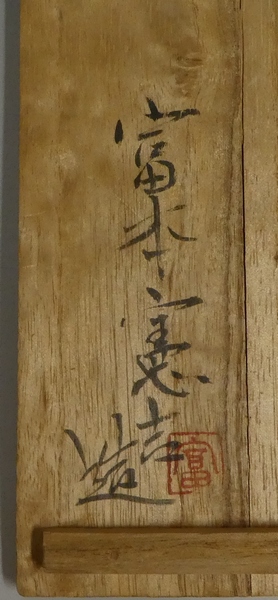 富本憲吉造
富